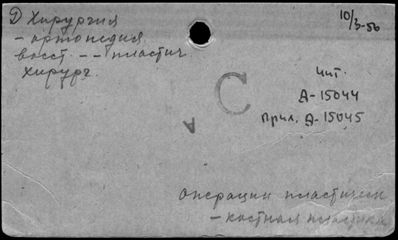 Д Хирургия
- ортопедия
восст. - - пластич.
хирург.
10/3-56
C
A
чит.
A-15044
прил. A-15045
Операции пластическ
- костная пластика